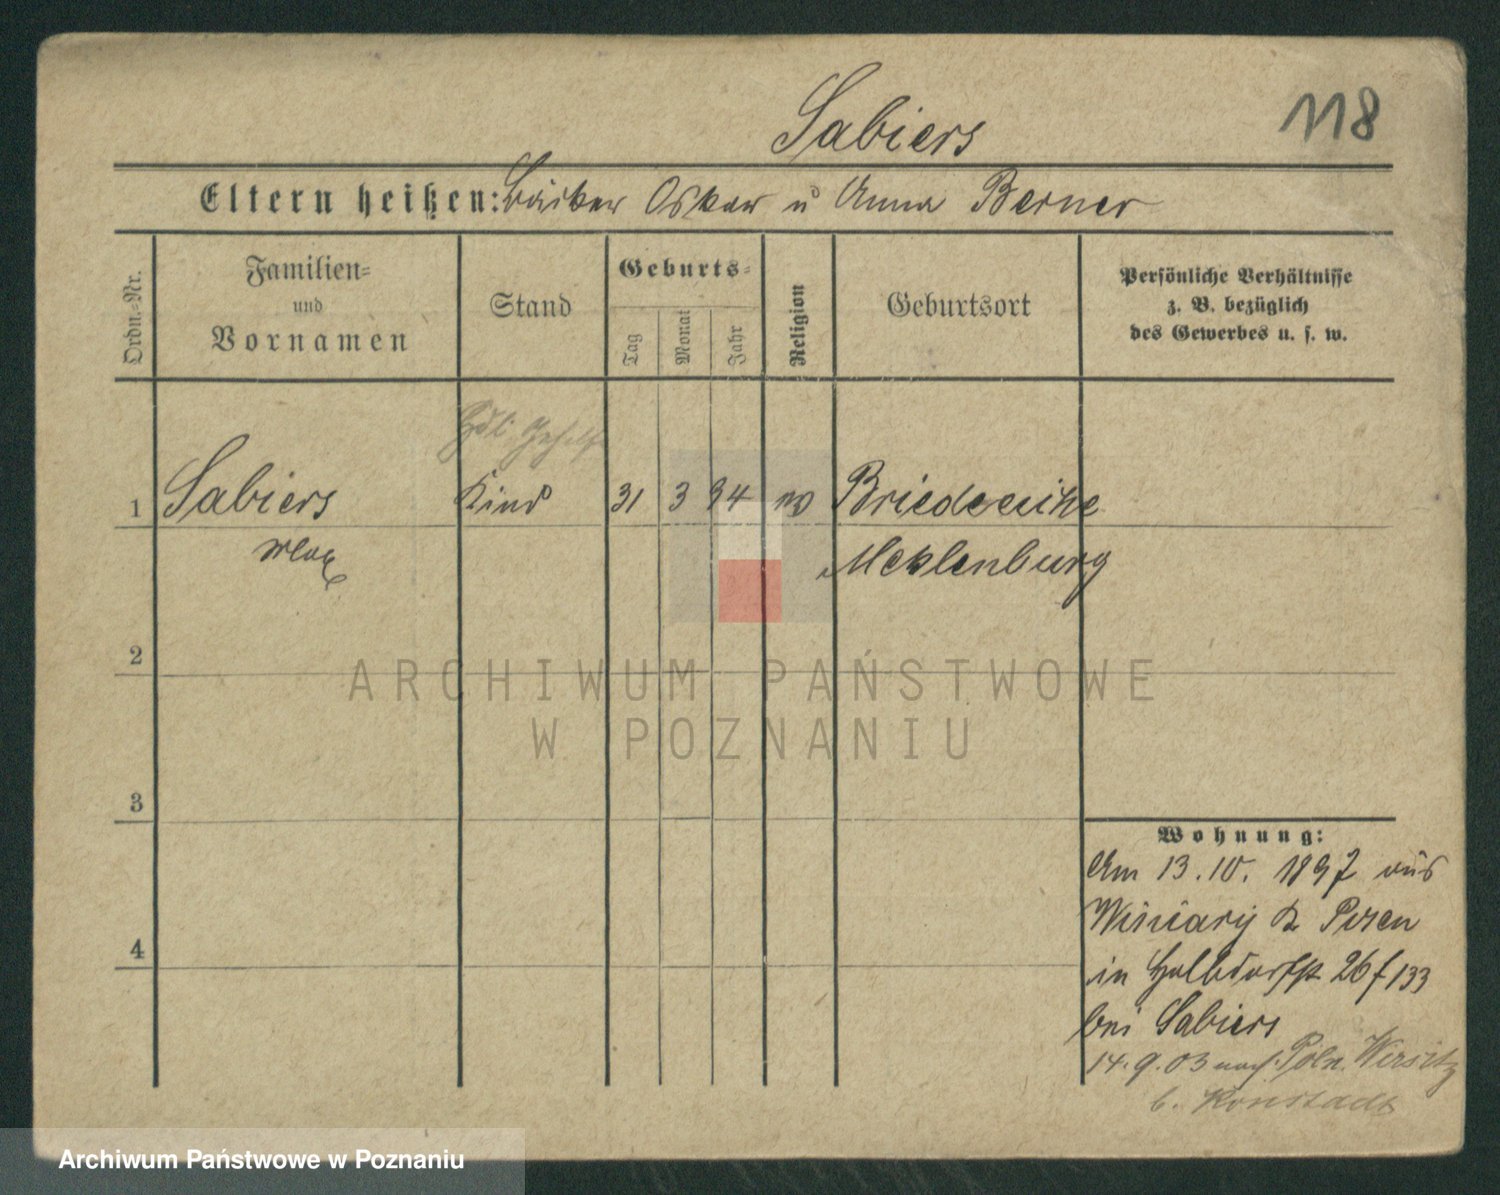 Sabiers
118
Eltern heißen: Oskar u Anna Berner
Ordn.-Nr.
Familien-
und
Vornamen
Stand
Geburts-
Tag
Monat
Jahr
Religion
Geburtsort
Persönliche Verhältnisse
z. B. bezüglich
des Gewerbes u. s. w.
1 Sabiers Kind 31 3 94
Max
Meklenburg
2
3
4
ARCHIWUM PAŃSTWOWE
W POZNANIU
Wohnung:
Am 13.10.1897 aus
Winiary Posen
in Halbdorfst 26 f 133
bei Sabiers
14.9.03 nach Poln. Wersitz
b. Konstadt
Archiwum Państwowe w Poznaniu